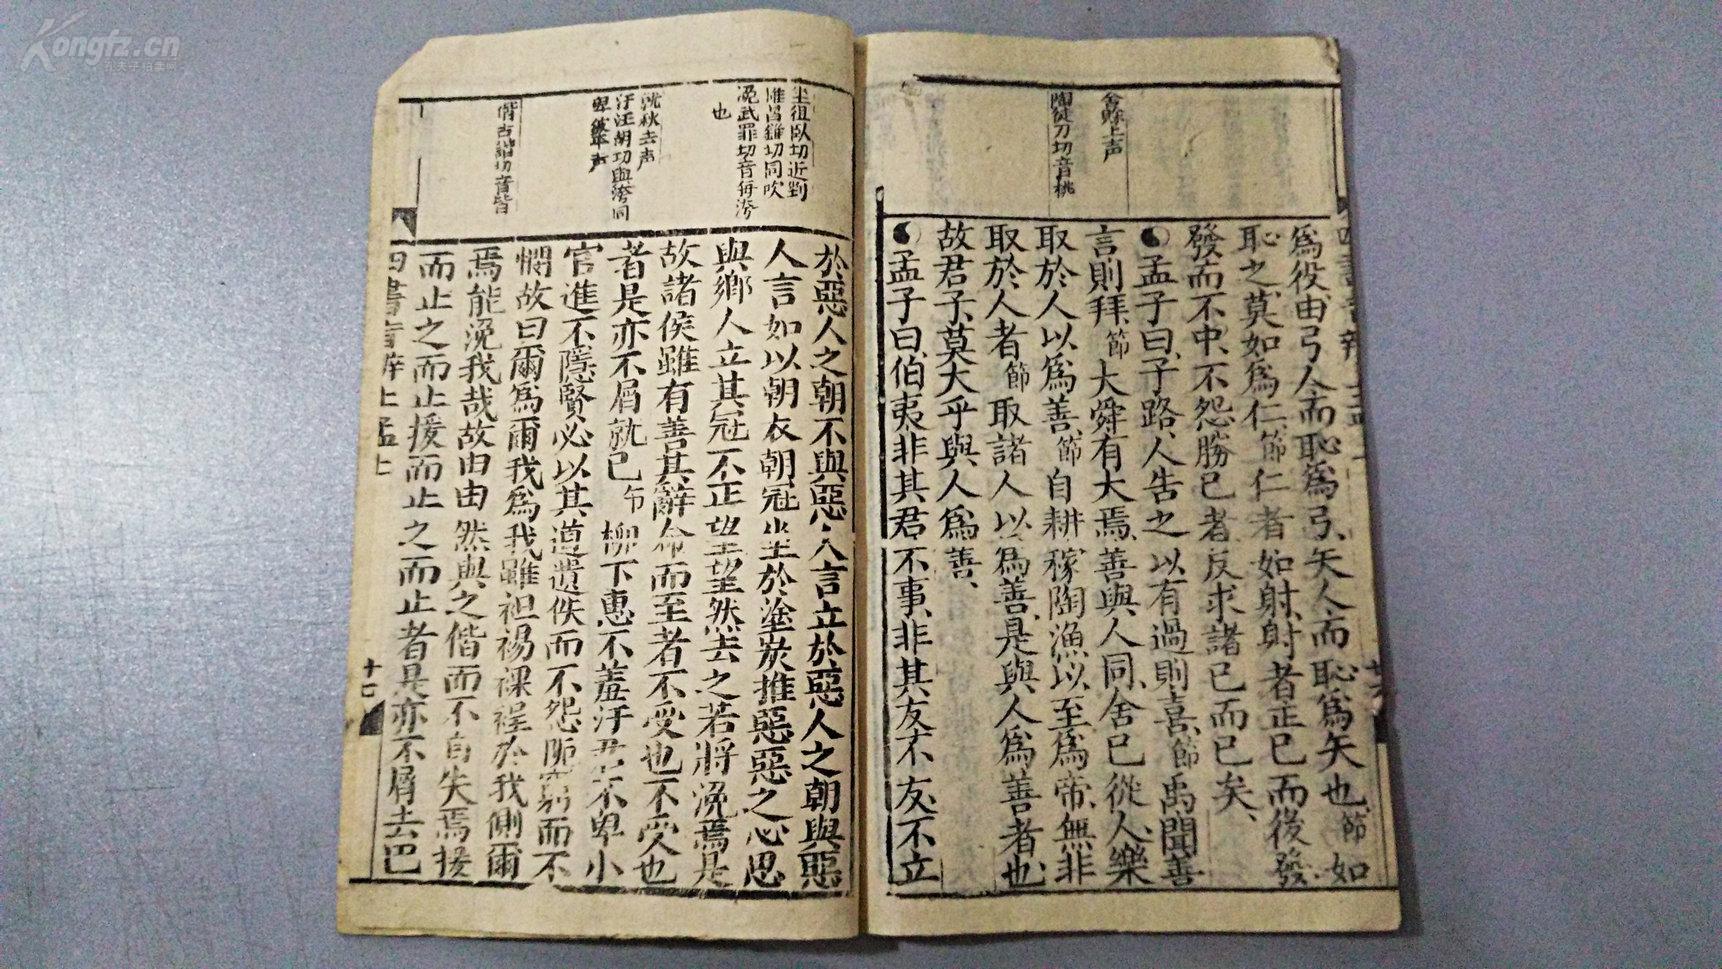 為役由弓人而恥為弓矢人而恥為矢也節如
恥之莫如為仁節仁者如射射者正已而後發
發而不中不怨勝已者反求諸已而已矣
孟子曰子路人告之以有過則喜節禹聞善
言則拜節大舜有大焉善與人同舍已從人樂
取於人以為善節自耕稼陶漁以至為帝無非
取於人者節取諸人以為善是與人為善者也
故君子莫大乎與人為善
孟子曰伯夷非其君不事非其友不友不立
舍賒上声
陶徒刀切音桃
於惡人之朝不與惡人言立於惡人之朝與惡
人言如以朝衣朝冠坐於塗炭推惡惡之心思
與鄉人立其冠不正望望然去之若將浼焉是
故諸侯雖有善其辭命而至者不受也不受也
者是亦不屑就已節柳下惠不羞汙君不卑小
官進不隱賢必以其道遺佚而不怨阨窮而不
憫故曰爾為爾我為我雖袒裼裸裎於我側爾
焉能浼我哉故由由然與之偕而不自失焉援
而止之而止援而止之而止者是亦不屑去已
四書音辨上孟上
十七
坐徂臥切近剉
浼武罪切音每滂
也
就秋去声
偕古諧切音皆
Kongfz.cn